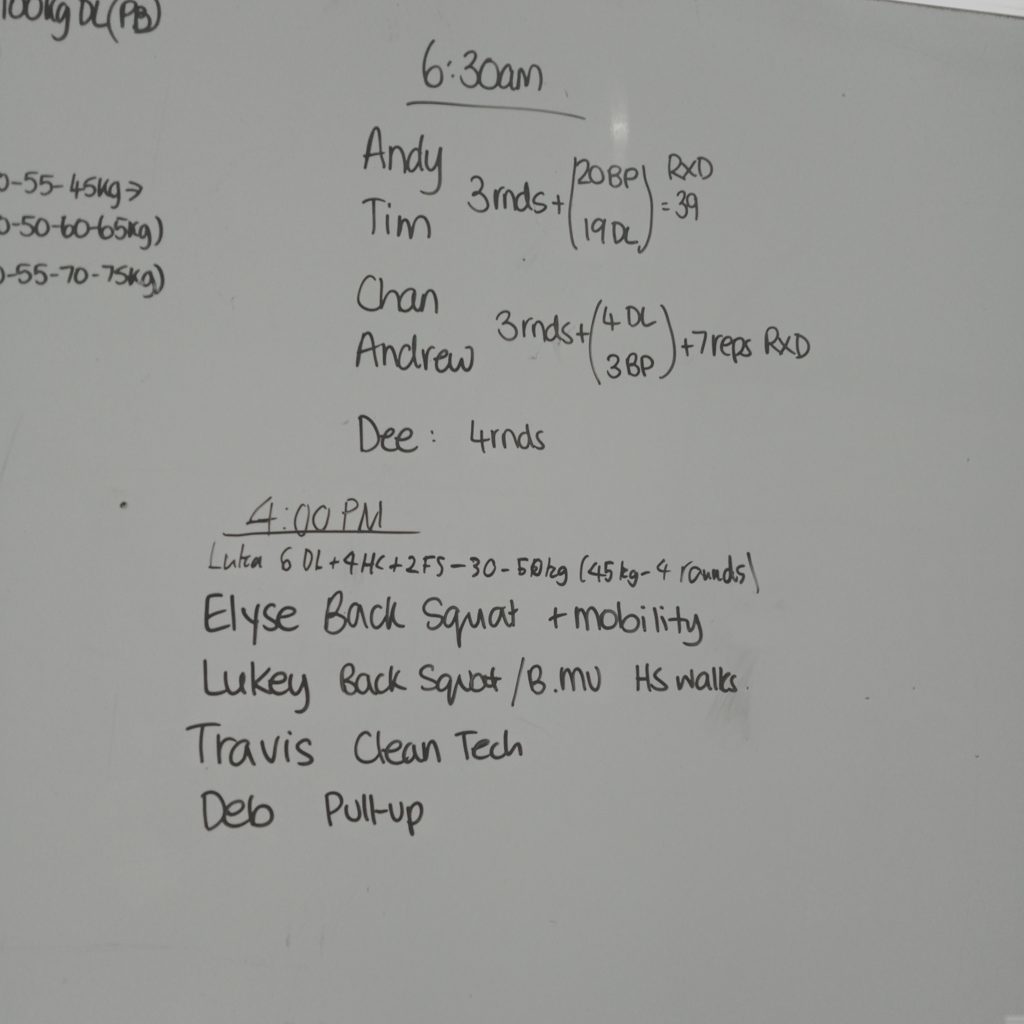 100kg DL (PB)
0-55-45kg→
0-50-60-65kg)
0-55-70-75kg)
6:30am
Andy
Tim
3rnds+(20BP 19DL)=39 RXD
Chan
Andrew
3rnds+(4 DL 3BP)+7reps RXD
Dee: 4rnds
4:00 PM
Luka 6 DL+4HC+2FS-30-50kg (45kg-4 rounds)
Elyse Back Squat +mobility
Lukey Back Squat/B.MU HS walks.
Travis Clean Tech
Deb Pull-up